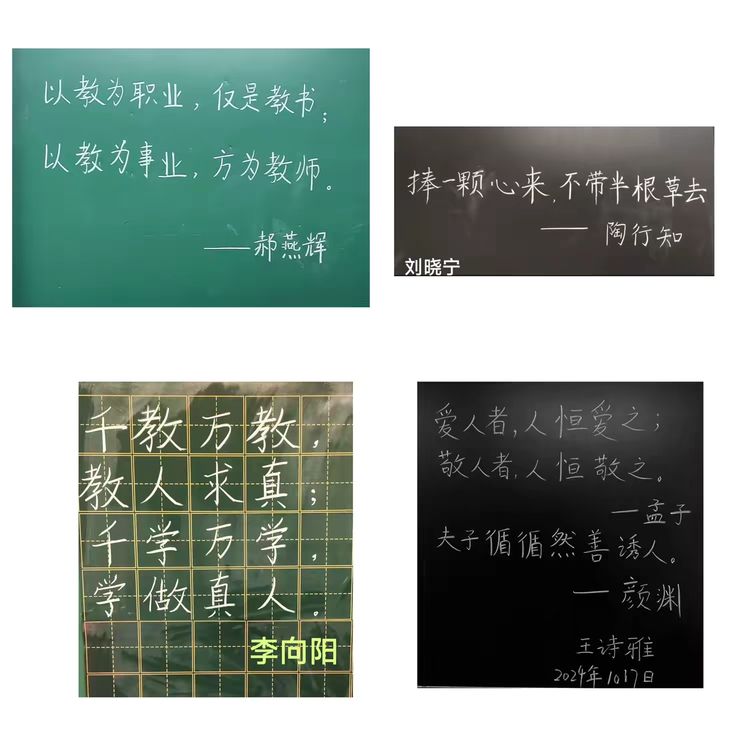 以教为职业，仅是教书；
以教为事业，方为教师。
——郝燕辉
捧一颗心来,不带半根草去
—— 陶行知
刘晓宁
千教万教，
教人求真；
千学万学，
学做真人。
李向阳
爱人者,人恒爱之；
敬人者,人恒敬之。
—孟子
夫子循循然善诱人。
—颜渊
王诗雅
2024年10.17日